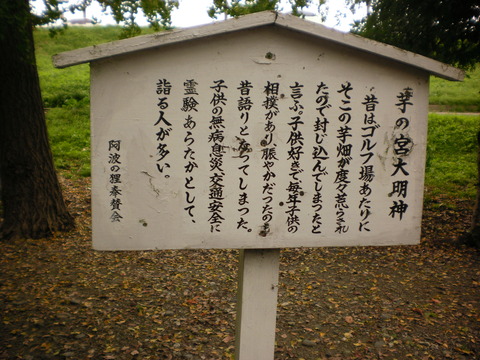 芋の宮大明神
昔はゴルフ場あたりに
そこの芋畑が度々荒らされ
たので封じ込んでしまったと
言ふ。子供好きで毎年子供の
相撲があり、賑やかだったのも
昔語りとなってしまった。
子供の無病息災、交通安全に
霊験あらたかとして、
詣る人が多い。
阿波の狸奉賛会